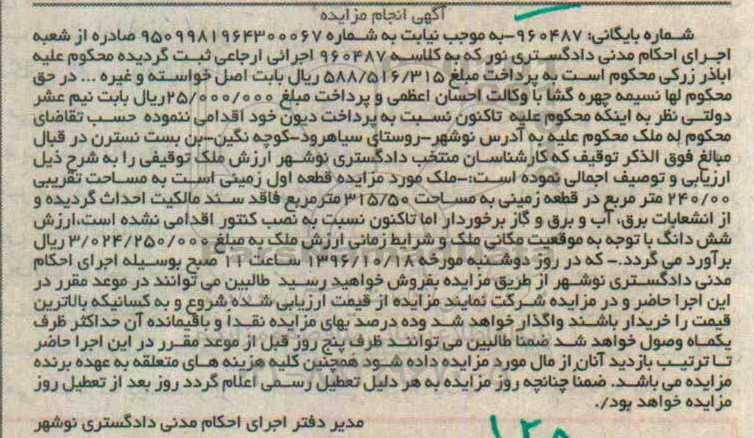 آگهی انجام مزایده
شماره بایگانی: ۹۶۰۴۸۷-به موجب نیابت به شماره ۹۵۰۹۹۸۱۹۶۴۳۰۰۰۶۷ صادره از شعبه
اجرای احکام مدنی دادگستری نور که به کلاسه ۹۶۰۴۸۷ اجرائی ارجاعی ثبت گردیده محکوم علیه
اباذر زرکی محکوم است به پرداخت مبلغ ۵۸۸/۵۱۶/۳۱۵ ریال بابت اصل خواسته و غیره ... در حق
محکوم لها نسیمه چهره گشا با وکالت احسان اعظمی و پرداخت مبلغ ۲۵/۰۰۰/۰۰۰ریال بابت نیم عشر
دولتی نظر به اینکه محکوم علیه تاکنون نسبت به پرداخت دیون خود اقدامی ننموده حسب تقاضای
محکوم له ملک محکوم علیه به آدرس نوشهر-روستای سیاهرود-کوچه نگین-بن بست نسترن در قبال
مبالغ فوق الذکر توقیف که کارشناسان منتخب دادگستری نوشهر ارزش ملک توقیفی را به شرح ذیل
ارزیابی و توصیف اجمالی نموده است:-ملک مورد مزایده قطعه اول زمینی است به مساحت تقریبی
۲۴۰/۰۰ متر مربع در قطعه زمینی به مساحت ۳۱۵/۵۰ مترمربع فاقد سند مالکیت احداث گردیده و
از انشعابات برق، آب و برق و گاز برخوردار اما تاکنون نسبت به نصب کنتور اقدامی نشده است،ارزش
شش دانگ با توجه به موقعیت مکانی ملک و شرایط زمانی ارزش ملک به مبلغ ۳/۰۲۴/۲۵۰/۰۰۰ ریال
برآورد می گردد.- که در روز دوشنبه مورخه ۱۳۹۶/۱۰/۱۸ ساعت ۱۱ صبح بوسیله اجرای احکام
مدنی دادگستری نوشهر از طریق مزایده بفروش خواهید رسید طالبین می توانند در موعد مقرر در
این اجرا حاضر و در مزایده شرکت نمایند مزایده از قیمت ارزیابی شده شروع و به کسانیکه بالاترین
قیمت را خریدار باشند واگذار خواهد شد وده درصد بهای مزایده نقدا و باقیمانده آن حداکثر ظرف
یکماه وصول خواهد شد ضمنا طالبین می توانند ظرف پنج روز قبل از موعد مقرر در این اجرا حاضر
تا ترتیب بازدید آنان از مال مورد مزایده داده شود همچنین کلیه هزینه های متعلقه به عهده برنده
مزایده می باشد. ضمنا چنانچه روز مزایده به هر دلیل تعطیل رسمی اعلام گردد روز بعد از تعطیل روز
مزایده خواهد بود/.
مدیر دفتر اجرای احکام مدنی دادگستری نوشهر